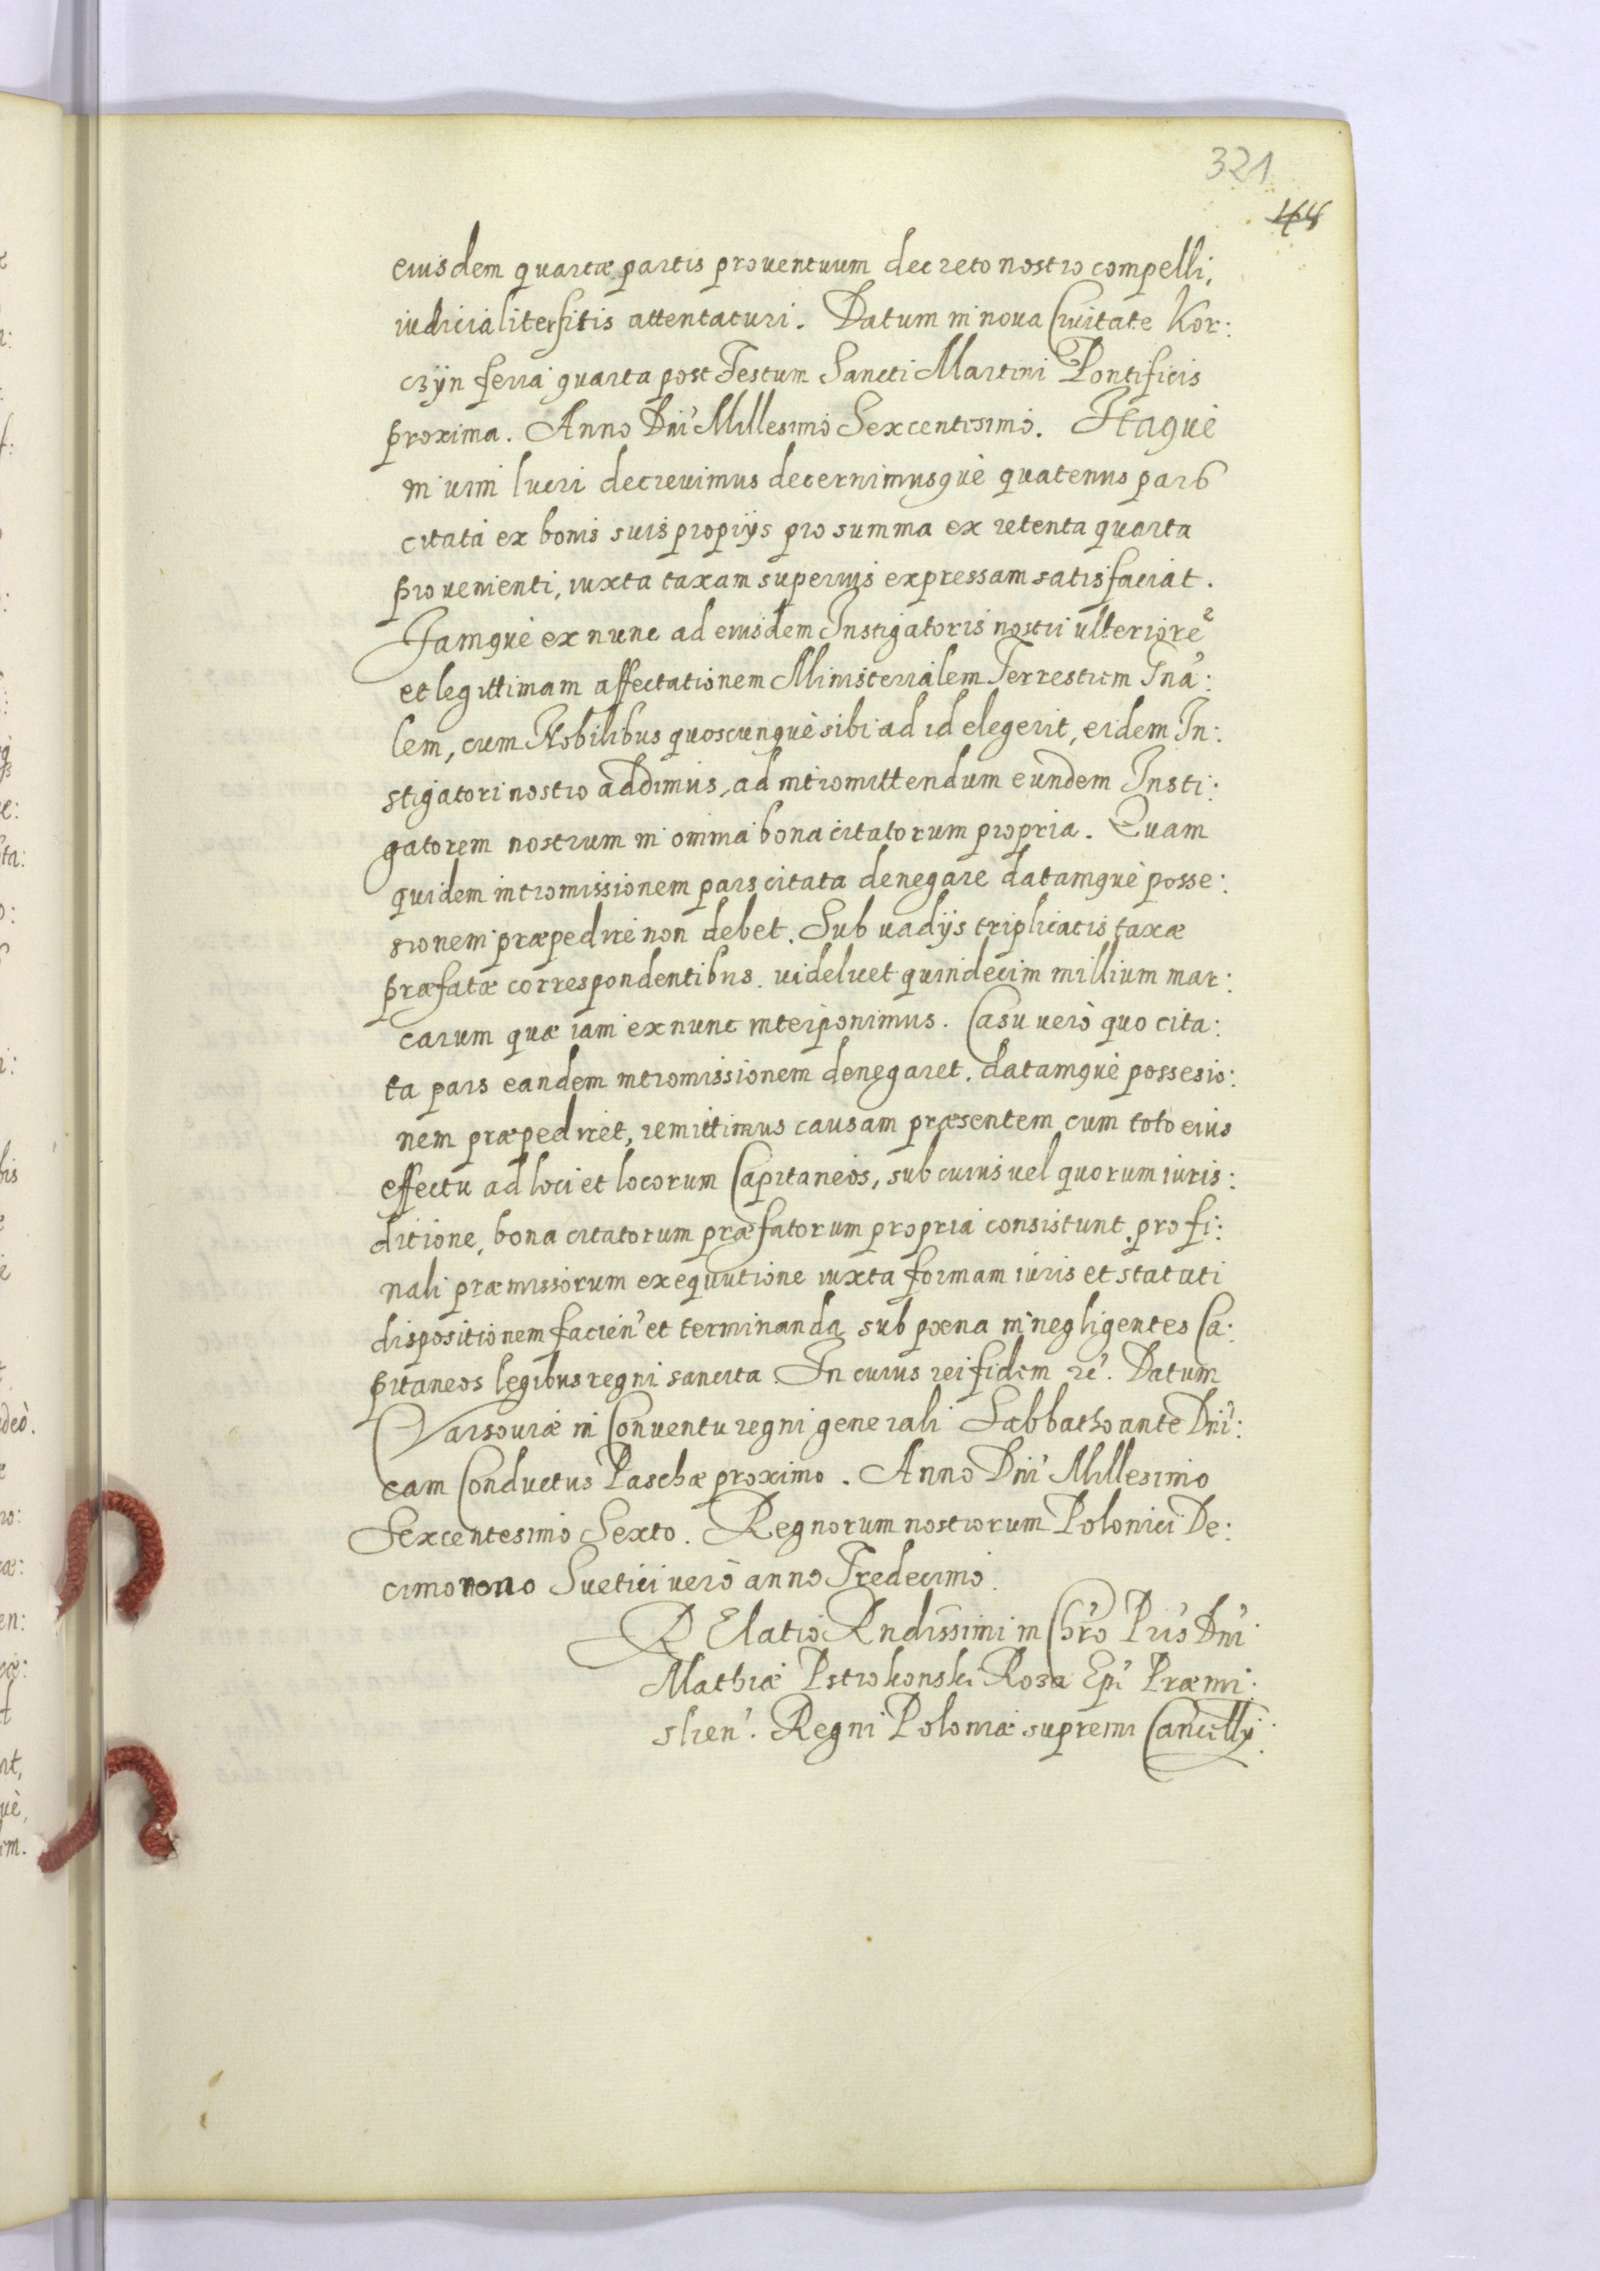 321
eiusdem quartæ partis prouentuum decreto nostro compelli,
iudicialiter sitis attentaturi. Datum in noua Ciuitate Kor:
czÿn feria quarta post Festum Sancti Martini Pontificis
proxima. Anno Dni Millesimo Sexcentisimo. Itaquè
in uim lucri decreuimus decernimusquè quatenus pars
citata ex bonis suis propijs pro summa ex retenta quarta
prouenienti, iuxta taxam superius expressam satisfaciat.
Jamquè ex nunc ad eiusdem Instigatoris nostri ulteriorē
et legittimam affectationem Ministerialem Terrestrem Gna:
lem, cum Nobilibus quoscunquè sibi ad id elegerit, eidem In:
stigatori nostro addimus, ad intromittendum eundem Insti:
gatorem nostrum in omnia bona citatorum propria. Quam
quidem intromissionem pars citata denegare datamquè posse:
sionem præpedire non debet. Sub uadijs triplicatis taxæ
præfatæ correspondentibus. uidelicet quindecim millium mar:
carum quæ iam ex nunc interponimus. Casu uerò quo cita:
ta pars eandem intromissionem denegaret. datamquè possesio:
nem præpediret, remittimus causam præsentem cum toto eius
effectu ad loci et locorum Capitaneos, sub cuius uel quorum iuris:
ditione, bona citatorum præfatorum propria consistunt. pro fi:
nali præmissorum exequutione iuxta formam iuris et statuti
dispositionem facien' et terminanda sub pœna in negligentes Ca:
pitaneos legibus regni sancita. In cuius rei fidem rė. Datum
Varsouiæ in Conuentu regni generali Sabbatho ante Dni':
cam Conductus Paschæ proximo. Anno Dni' Millesimo
Sexcentesimo Sexto. Regnorum nostrorum Polonici De:
cimo nono Suetici uerò anno Tredecimo.
RElatio Rndissimi in Chr'o Pris Dni'
Mathiæ Pstrokonski Roza Epi' Præmi:
slien'. Regni Poloniæ supremi Cancellÿ.